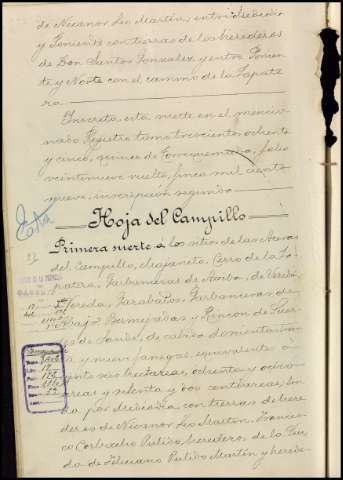 de Nicanor Leo Martin, entre Mediodia
y Poniente con tierras de los herederos
de Don Santos Gonzalez y entre Ponien-
te y Norte con el camino de la Zapate
ra.
Inscrita esta suerte en el mencio-
nado Registro tomo trescientos ochenta
y cinco, quince de Torquemada, folio
veintinueve vuelto, finca mil ciento
nueve, inscripción segunda.
Hoja del Campillo
Primera suerte a los sitios de las Arenas
del Campillo, Cerro de la Za-
patera, Garbanceras de Arriba, de
Vereda, Garbanceras de
Abajo, Bermejadas y Rincon de Suer-
de cabida doscientas
y nueve fanegas, equivalente á
hectareas, ochenta y ocho
areas y setenta y dos centiareas; lin-
da por Mediodia con tierras de here-
deros de Nicanor Leo Martin, Francis-
co Corbacho Pulido, herederos de la Viu-
da de Feliciano Pulido Martin y herede-